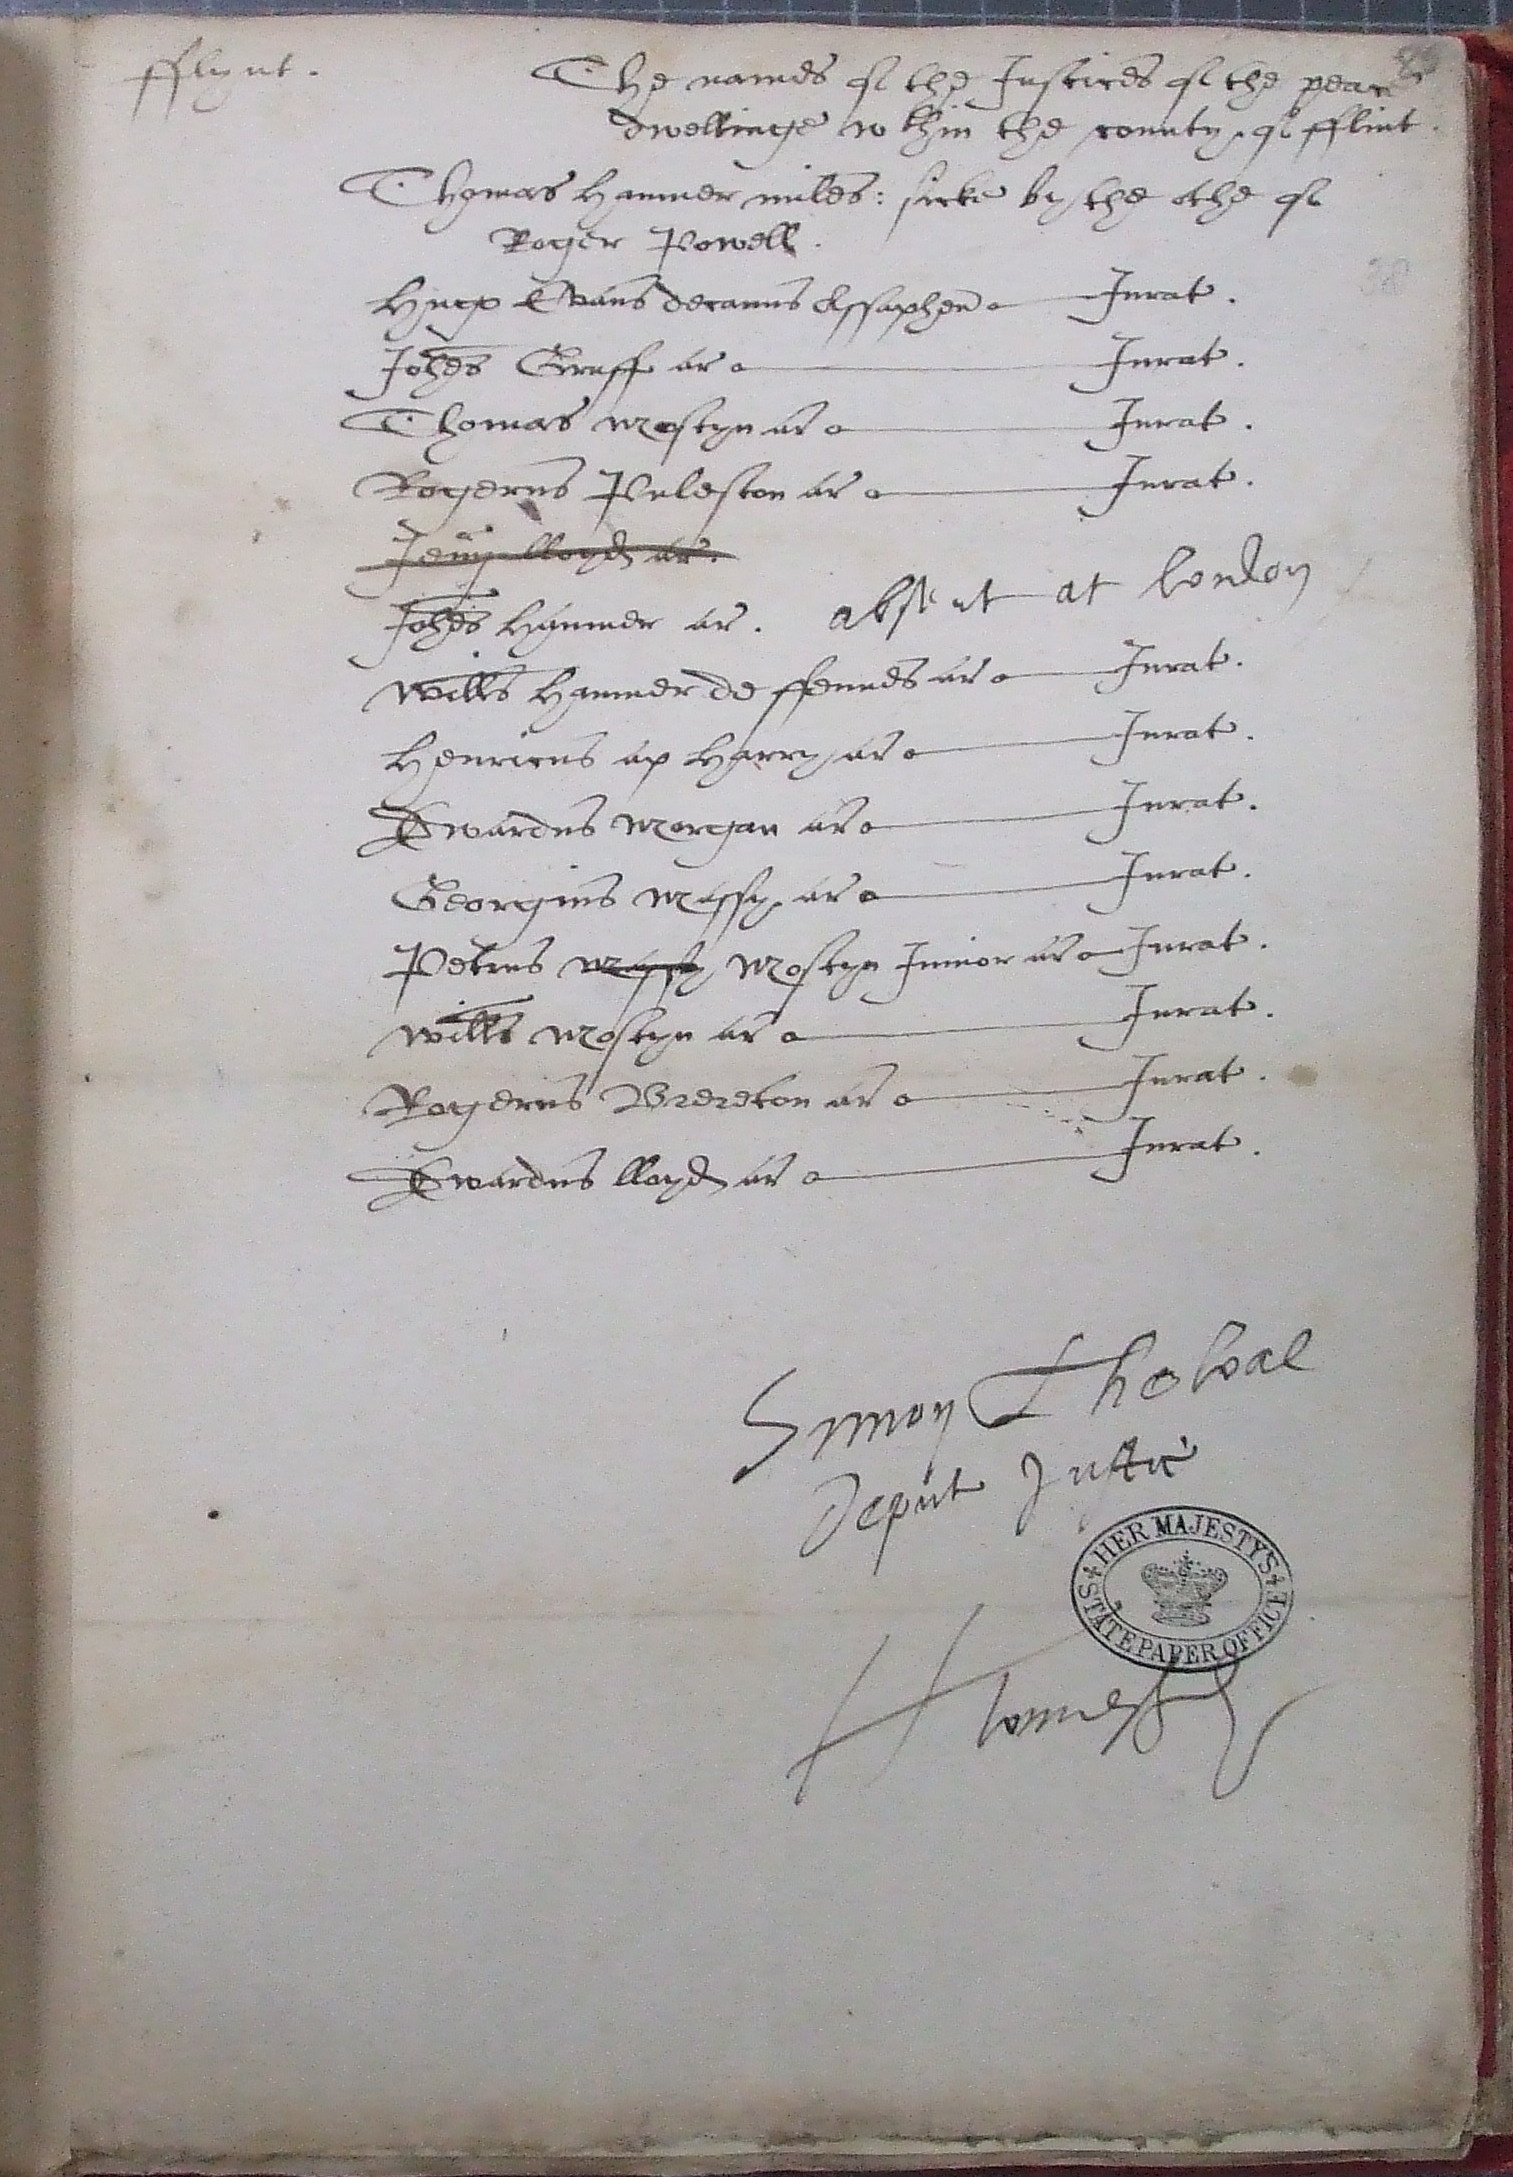 fflynt.
The names of the Justices of the peace
dwellinge wthin the county of fflint.
Thomas Hanmer miles: sicke by the othe of
Roger Powell.
38
Hugo Evans decanus Assaphen Jurat.
Johes Gruff ar Jurat.
Thomas Mostyn ar Jurat.
Rogerus Puleston ar Jurat.
Jeun lloyd ar.
Johes Hanmer ar. absent at london
Willms Hanmer de ffennes ar Jurat.
Henricus ap Harry ar Jurat.
Edwardus Morgan ar Jurat.
Georgius Massy ar Jurat.
Petrus Massy Mostyn Junior ar Jurat.
Willms Mostyn ar Jurat.
Rogerus Brereton ar Jurat.
Edwardus lloyd ar Jurat.
Symon Thelwal
Deput Justic
HER MAJESTY'S
STATE PAPER OFFICE
H Townesend